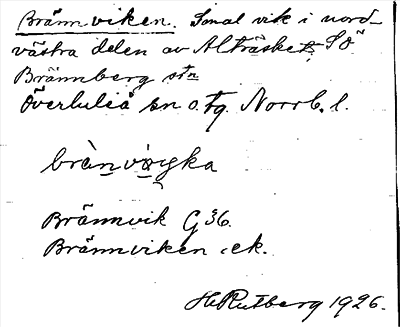 Brännviken. Smal vik i nord-
västra delen av Alträsket, SÖ
Brännberg stn
Överluleå sn o. tg. Norrb. l.
Brännvik G 36.
Brännviken ek.
H. Rutberg 1926.